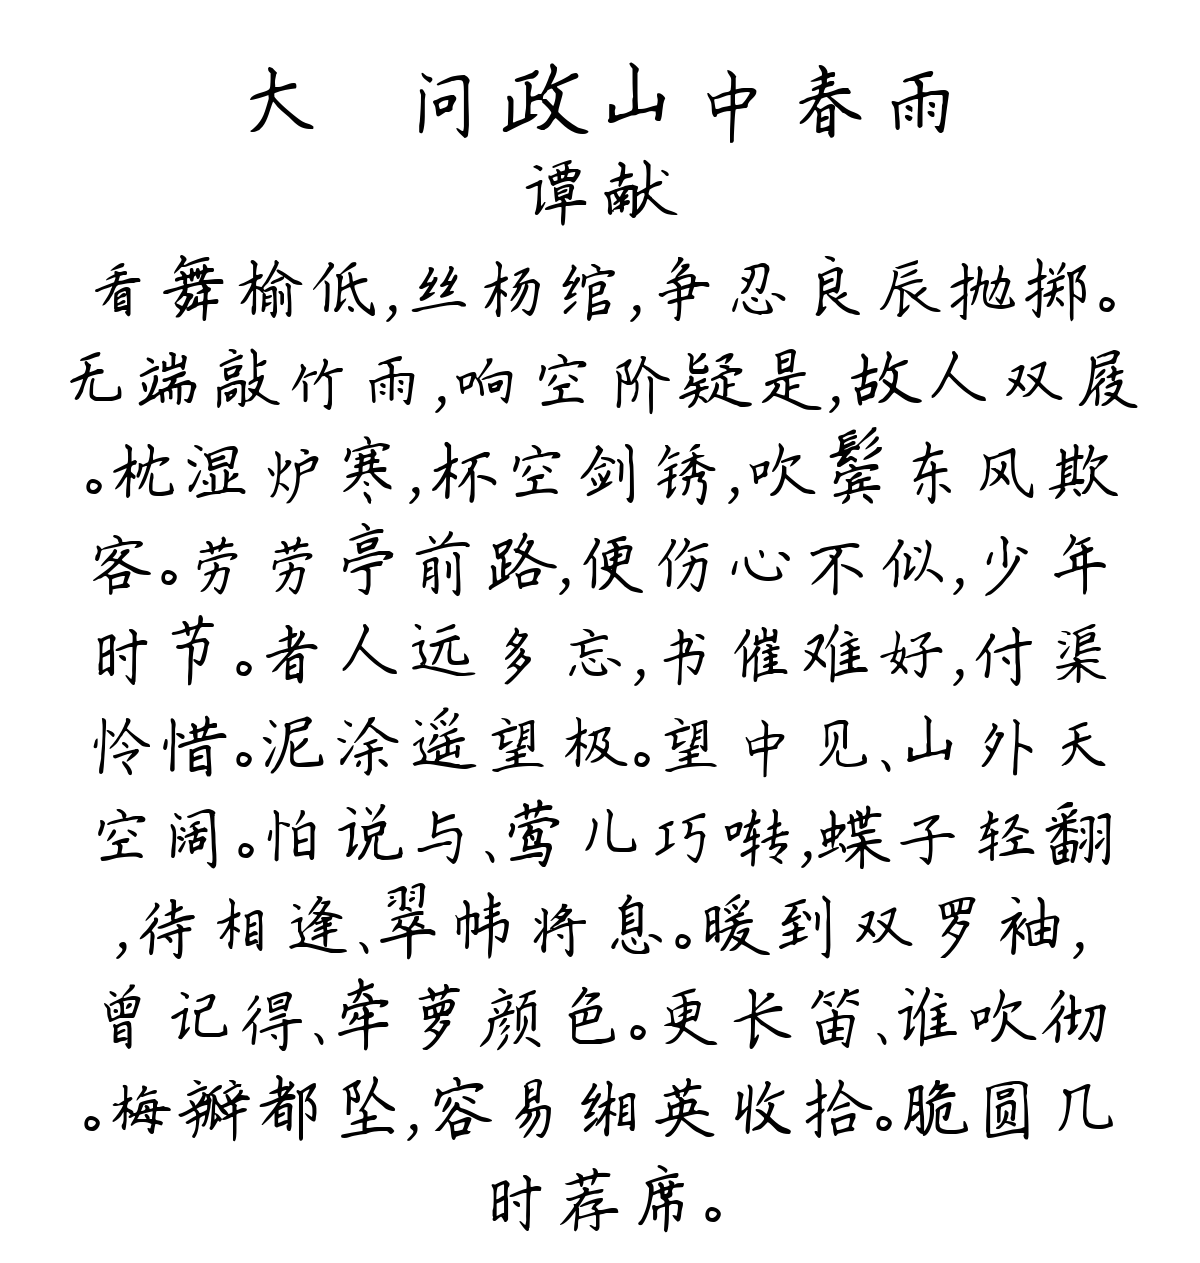 大　问政山中春雨
谭献
看舞榆低,丝杨绾,争忍良辰抛掷。
无端敲竹雨,响空阶疑是,故人双屐
。枕湿炉寒,杯空剑锈,吹鬓东风欺
客。劳劳亭前路,便伤心不似,少年
时节。者人远多忘,书催难好,付渠
怜惜。泥涂遥望极。望中见、山外天
空阔。怕说与、莺儿巧啭,蝶子轻翻
,待相逢、翠帏将息。暖到双罗袖,
曾记得、牵萝颜色。更长笛、谁吹彻
。梅瓣都坠,容易缃英收拾。脆圆几
时荐席。